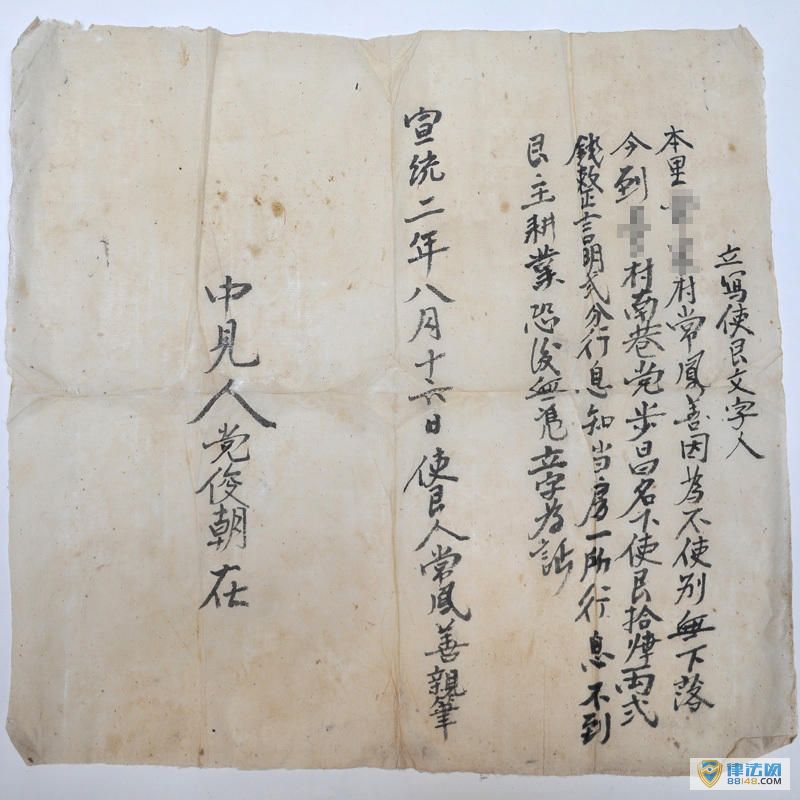 立写使艮文字人
本里村常鳳善因為不使别無下落
今到村南巷党步昌名下使艮拾肆両弍
錢整言明弍分行息知当房一所行息不到
艮主耕業恐後無凴立字為証
宣統二年八月十六日使艮人常鳳善親筆
中見人党俊朝在
律法网
88148.COM